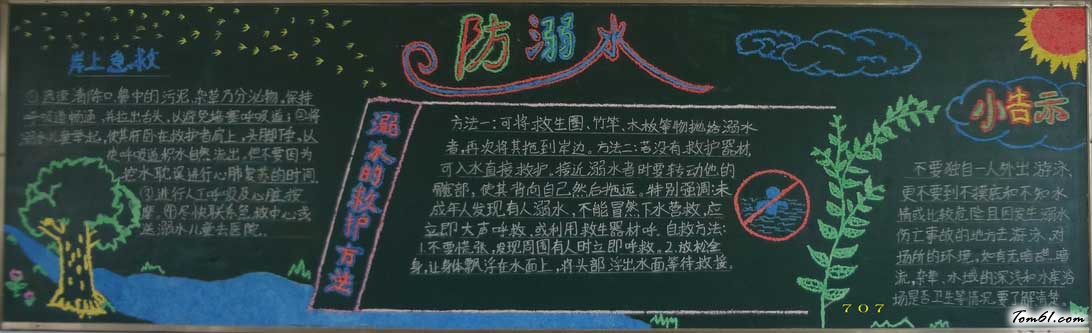 防溺水
岸上急救
①迅速清除口鼻中的污泥、杂草及分泌物,保持
呼吸道畅通,并拉出舌头,以避免堵塞呼吸道;②将
溺水儿童举起,使其俯卧在救护者肩上,头脚下垂,以
使呼吸道积水自然流出。但不要因为
控水耽误进行心肺复苏的时间。
③进行人工呼吸及心脏按
摩。④尽快联系急救中心或
送溺水儿童去医院。
溺水的救护方法
方法一:可将救生圈、竹竿、木板等物抛给溺水
者,再次将其拖到岸边。方法二:若没有救护器材,
可入水直接救护。接近溺水者时要转动他的
髋部,使其背向自己然后拖运。特别强调:未
成年人发现有人溺水,不能冒然下水营救,应
立即大声呼救,或利用救生器材呼。自救方法:
1.不要慌张,发现周围有人时立即呼救。2.放松全
身,让身体飘浮在水面上,将头部浮出水面等待救援。
小告示
不要独自一人外出游泳,
更不要到不摸底和不知水
情或比较危险且因发生溺水
伤亡事故的地方去游泳。对
场所的环境,如有无暗礁、暗
流、杂草,水域的深浅和水库浴
场是否卫生等情况要了解清楚。
707
Tom61.com